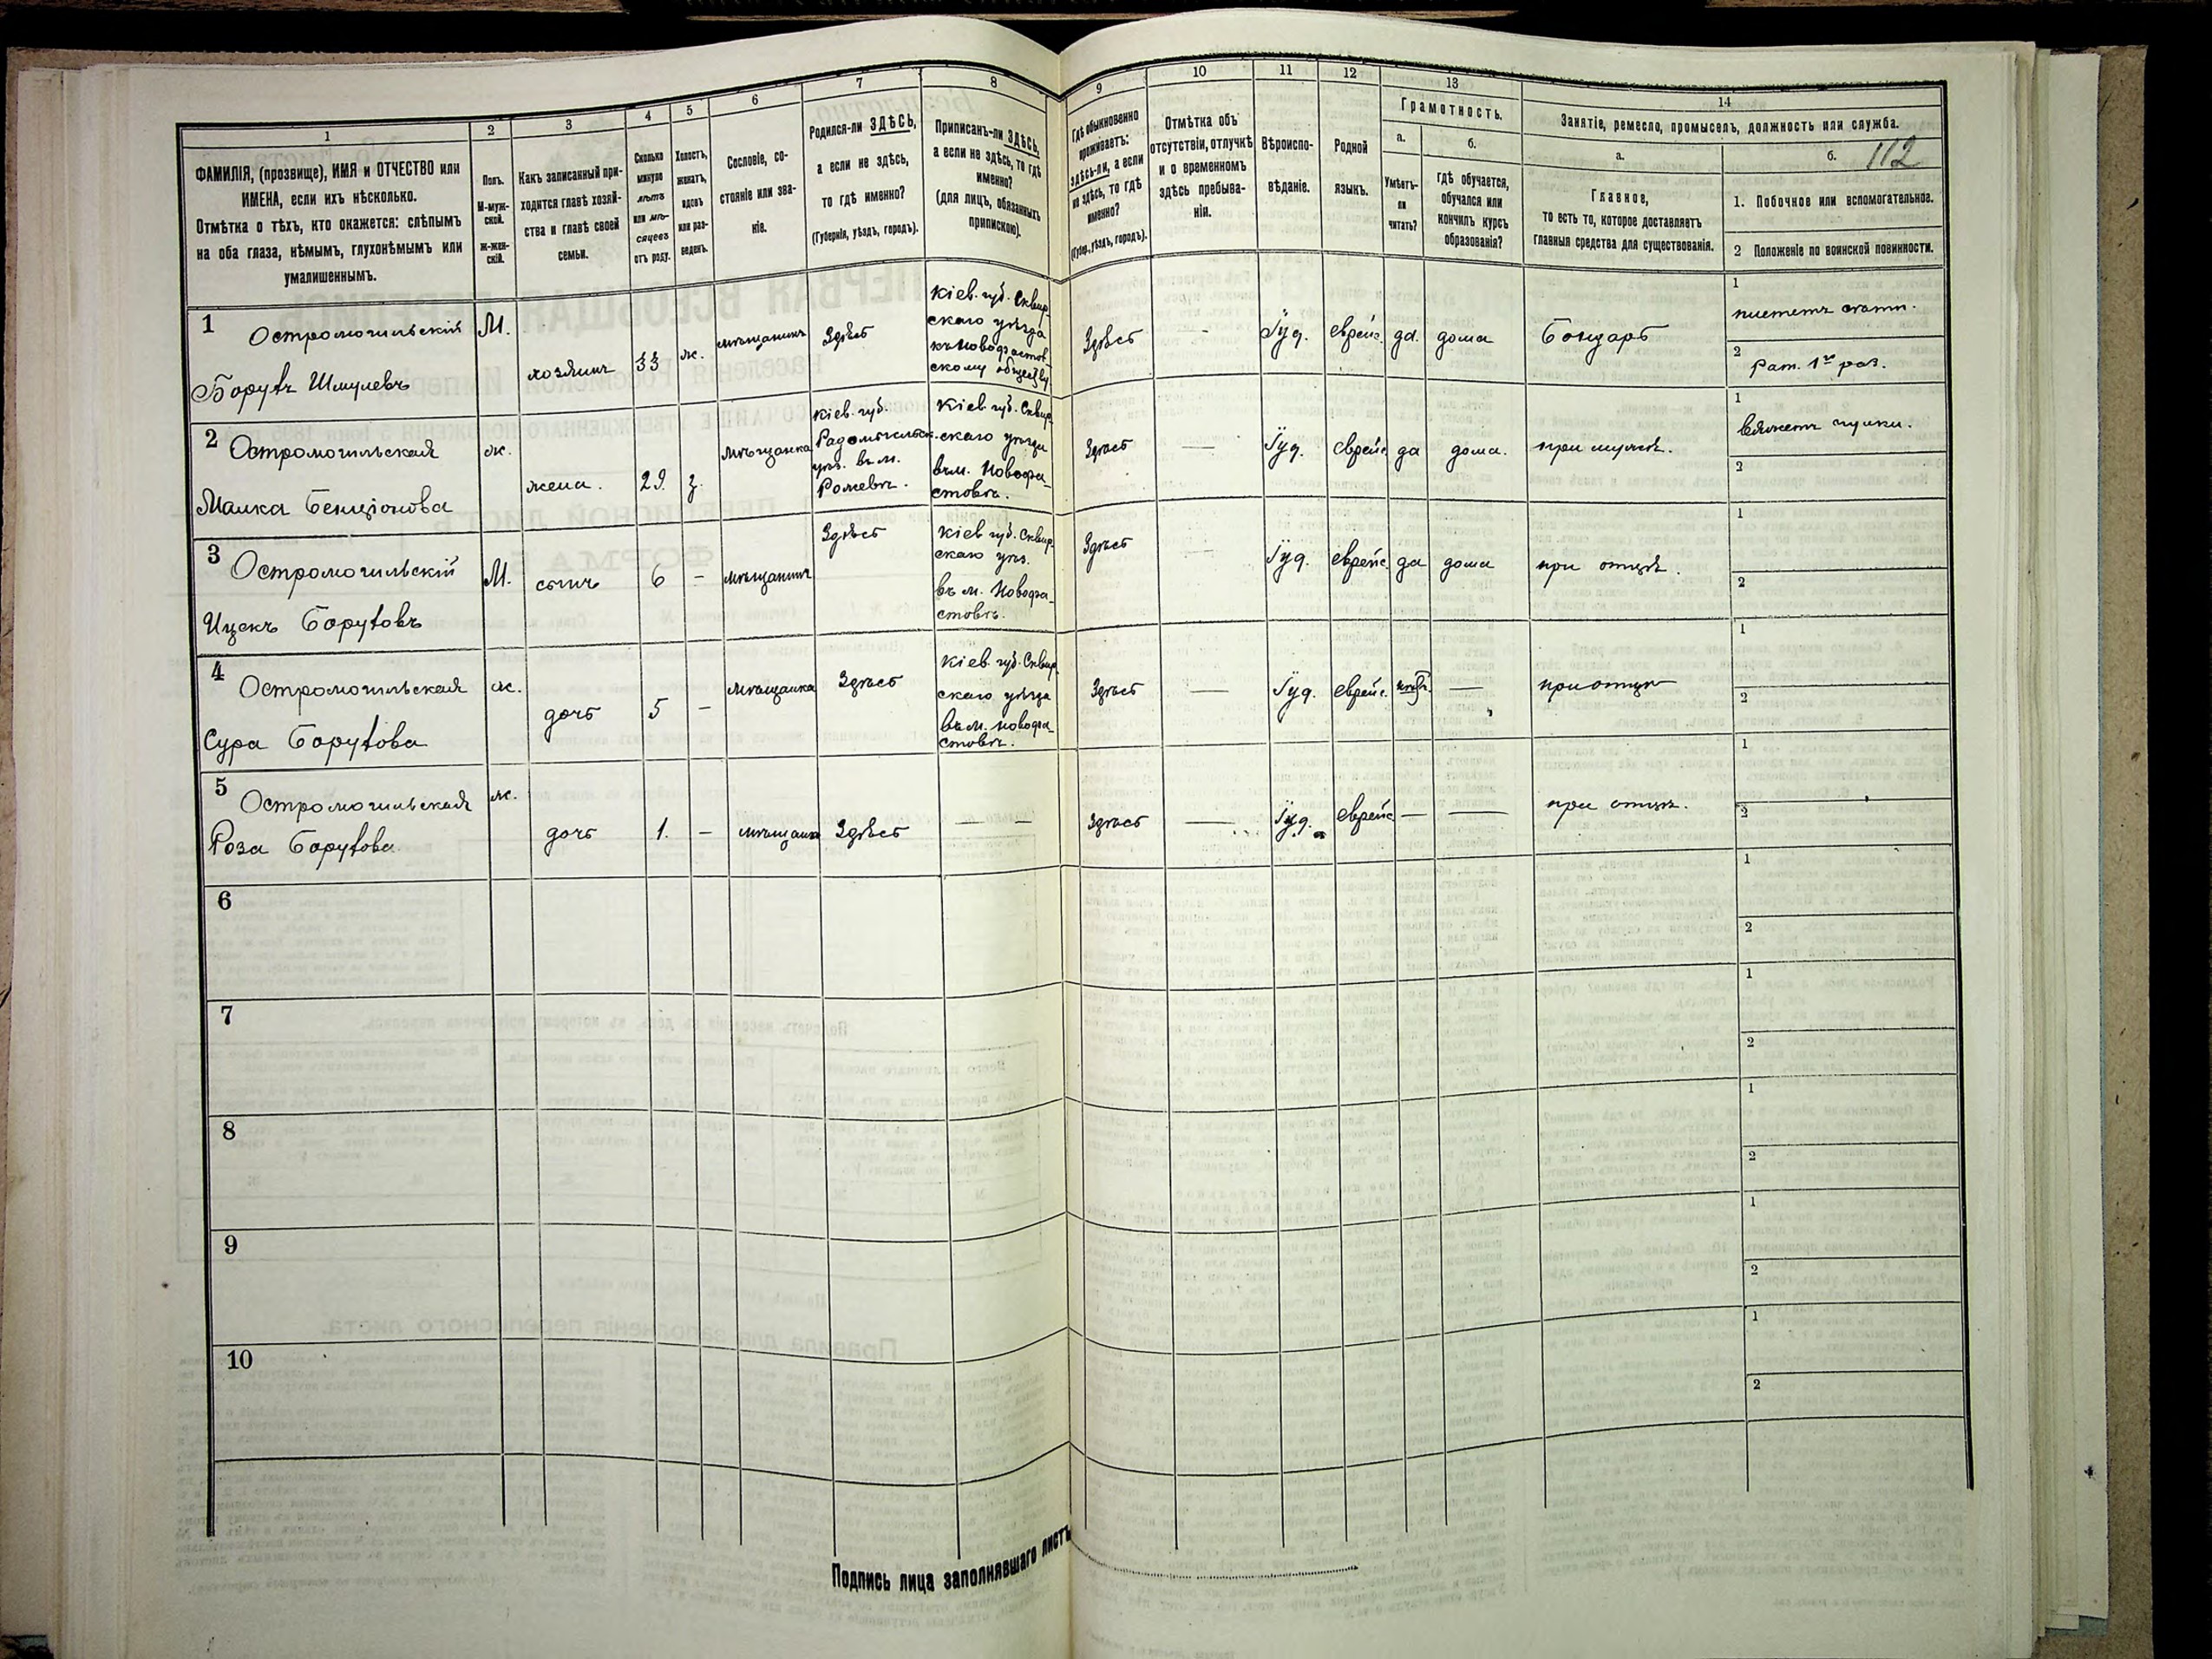 1
2
3
4
5
6
7
8
9
10
11
12
13
14
ФАМИЛІЯ, (прозвище), ИМЯ и ОТЧЕСТВО или
ИМЕНА, если ихъ нѣсколько.
Отмѣтка о тѣхъ, кто окажется: слѣпымъ
на оба глаза, нѣмымъ, глухонѣмымъ или
умалишеннымъ.
Полъ.
М-муж-
ской.
Ж-жен-
скій.
Какъ записанный при-
ходится главѣ хозяй-
ства и главѣ своей
семьи.
Сколько
минуло
лѣтъ
или мѣ-
сяцевъ
отъ роду.
Холостъ,
женатъ,
вдовъ
или раз-
веденъ.
Сословіе, со-
стояніе или зва-
ніе.
Родился-ли ЗДѢСЬ,
а если не здѣсь,
то гдѣ именно?
(Губернія, уѣздъ, городъ).
Приписанъ-ли ЗДѢСЬ,
а если не здѣсь, то гдѣ
именно?
(для лицъ, обязанныхъ
припискою).
Гдѣ обыкновенно
проживаетъ:
здѣсь-ли, а если
не здѣсь, то гдѣ
именно?
(Губер., уѣздъ, городъ).
Отмѣтка объ
отсутствіи, отлучкѣ
и о временномъ
здѣсь пребыва-
ніи.
Вѣроиспо-
вѣданіе.
Родной
языкъ.
Грамотность.
а.
Умѣетъ-
ли
читать?
б.
гдѣ обучается,
обучался или
кончилъ курсъ
образованія?
Занятіе, ремесло, промыселъ, должность или служба.
а.
Главное,
то есть то, которое доставляетъ
главныя средства для существованія.
б. 112
1. Побочное или вспомогательное.
2 Положеніе по воинской повинности.
1
Остромогильскій
Борухъ Шмулевъ
М.
хозяинъ
33
ж.
мѣщанинъ
Здѣсь
Кіев. губ. Сквир-
скаго уѣзда
къ Новофастов-
скому обществу
Здѣсь
-
Іуд.
еврейс.
да
дома
Бондарь
1
2
Рат. 1го раз.
2
Остромогильская
Малка Бенціонова
ж.
жена.
29
з.
мѣщанка
Кіев. губ.
Радомысльск.
уѣз. въ м.
Рожевѣ.
Кіев. губ. Сквир-
скаго уѣзда
въ м. Новофа-
стовѣ.
Здѣсь
—
Іуд.
еврейс
да
дома.
при мужѣ.
1
вяжетъ чулки.
2
3
Остромогильскій
Ицекъ Боруховъ
М.
сынъ
6
-
мѣщанинъ
Здѣсь
Кіев губ. Сквир-
скаго уѣз.
въ м. Новофа-
стовѣ.
Здѣсь
—
Іуд.
еврейс.
да
дома
при отцѣ.
1
2
4
Остромогильская
Сура Борухова
ж.
дочь
5
-
мѣщанка
Здѣсь
Кіев. губ. Сквир-
скаго уѣзда
въ м. Новофа-
стовѣ.
Здѣсь
—
Іуд.
еврейс.
нѣтъ
—
при отцѣ
1
2
5
Остромогильская
Роза Борухова
ж.
дочь
1.
-
мѣщанка
Здѣсь
— —
Здѣсь
—
Іуд.
еврейс
—
—
при отцѣ.
1
2
6
1
2
7
1
2
8
1
2
9
1
2
10
1
2
Подпись лица заполнявшаго листъ